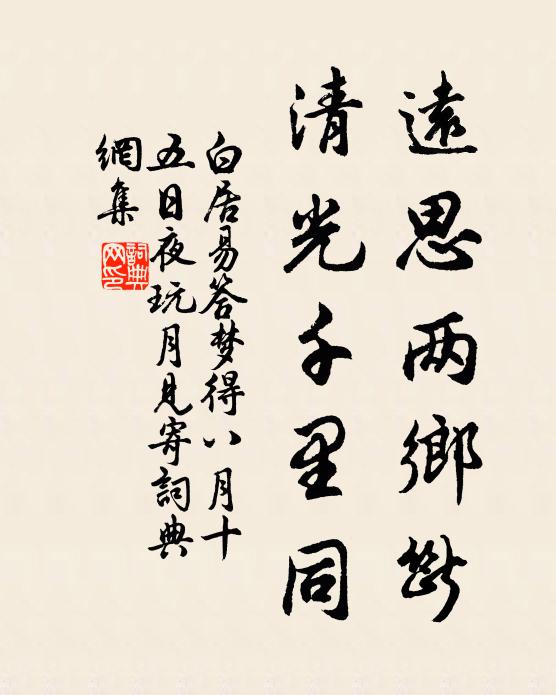 遠思两鄉断
清光千里同
白居易答梦得八月十
五日夜玩月見寄詞典
網集
詞典
网印